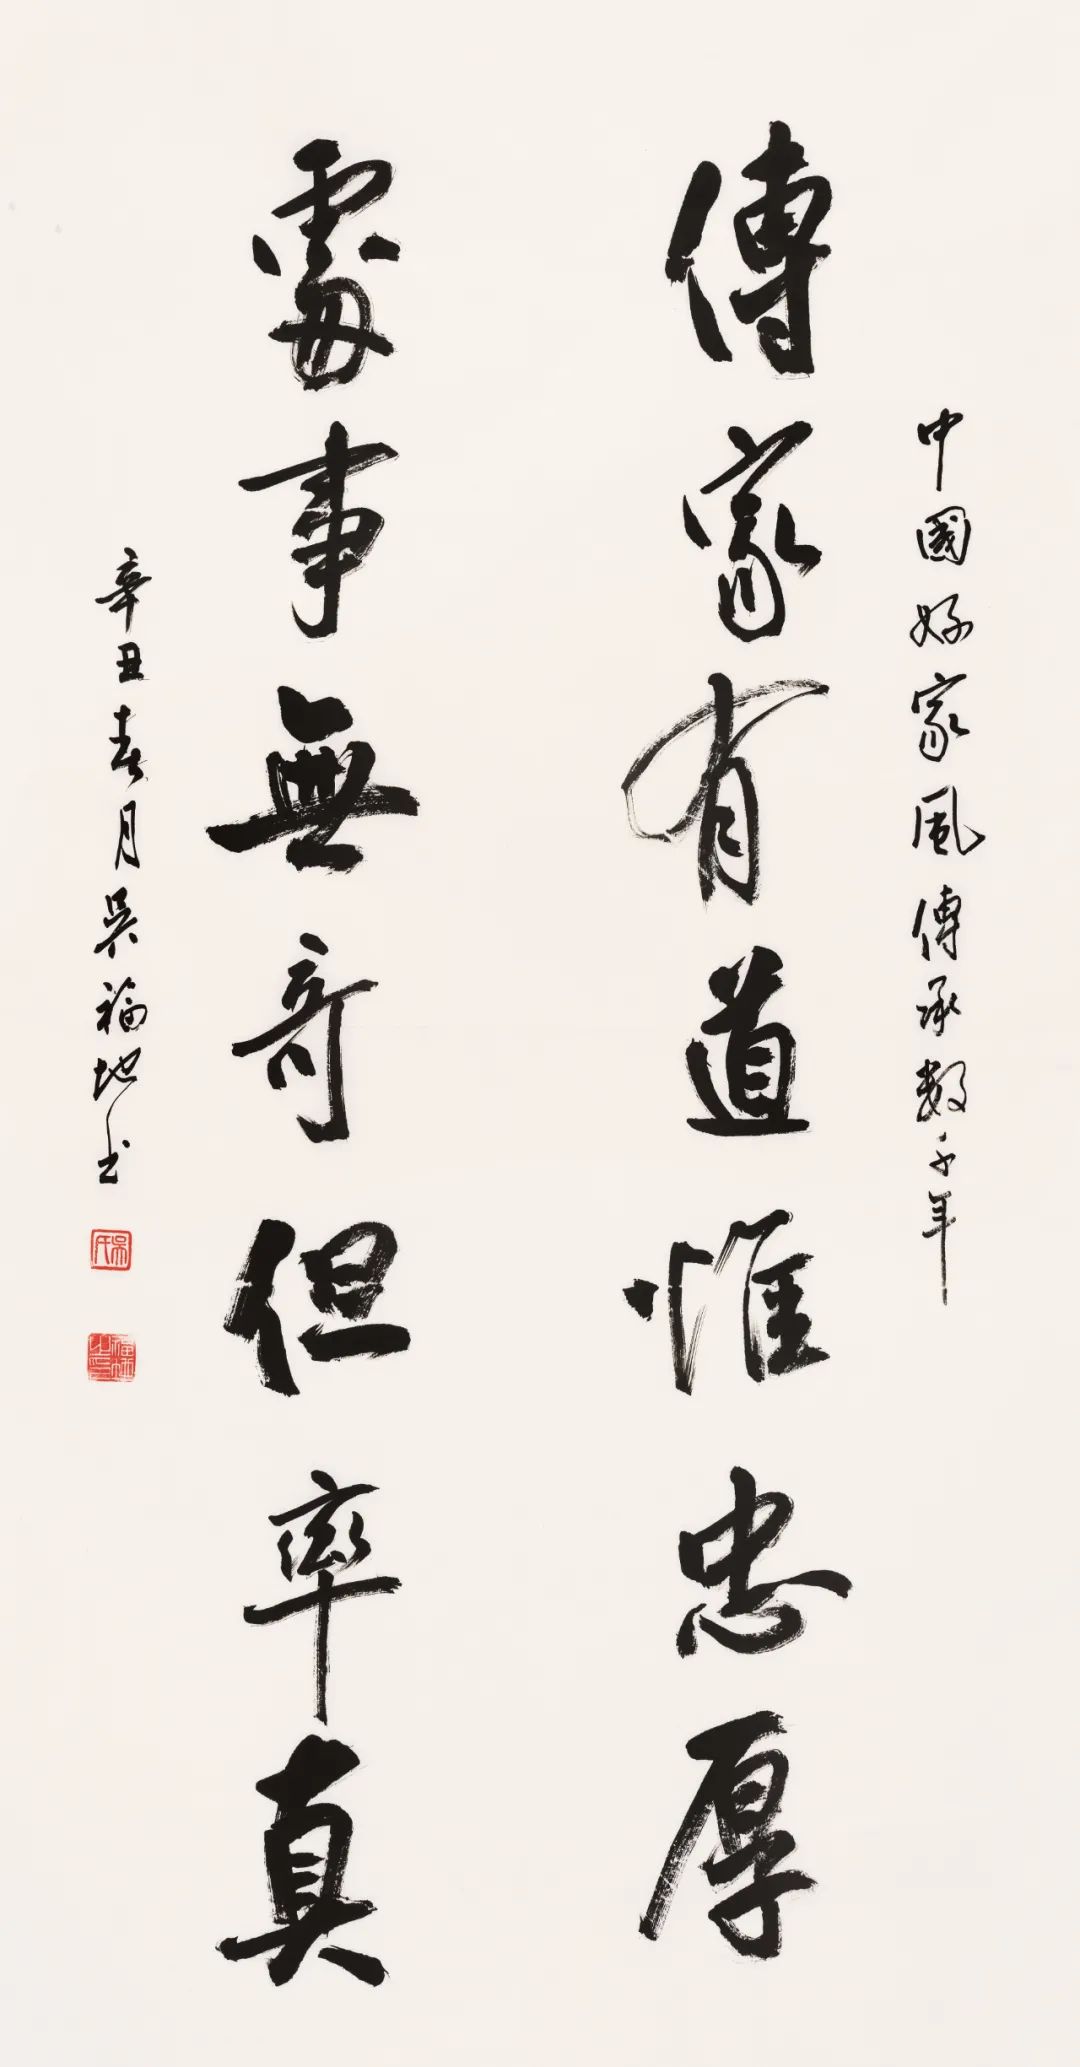 中國好家風傳承數千年
傳家有道惟忠厚
處事無奇但率真
辛丑春月吳福地书
吳氏
福地之印